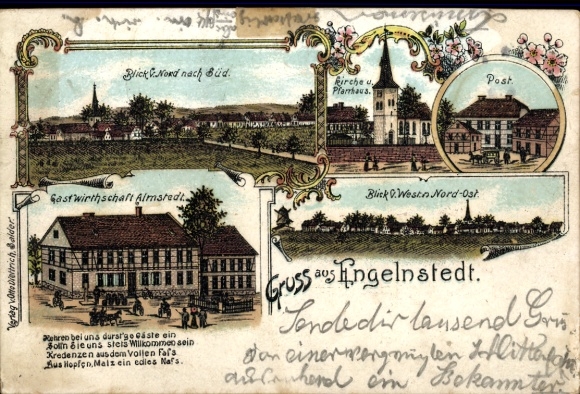 Blick v. Nord nach Süd.
Kirche u.
Pfarrhaus.
Post.
Gastwirthschaft Almstedt.
Blick v. West n. Nord-Ost.
Gruss aus Engelnstedt.
Verlag v. Otto Dittrich, Salder.
Kehren bei uns durst'ge Gäste ein
Soll'n Sie uns stets Willkommen sein
Kredenzen aus dem Vollen Fass
Aus Hopfen, Malz ein edles Nass.
Sende dir tausend Grüs
von einer vergnügten
ein Bekannter